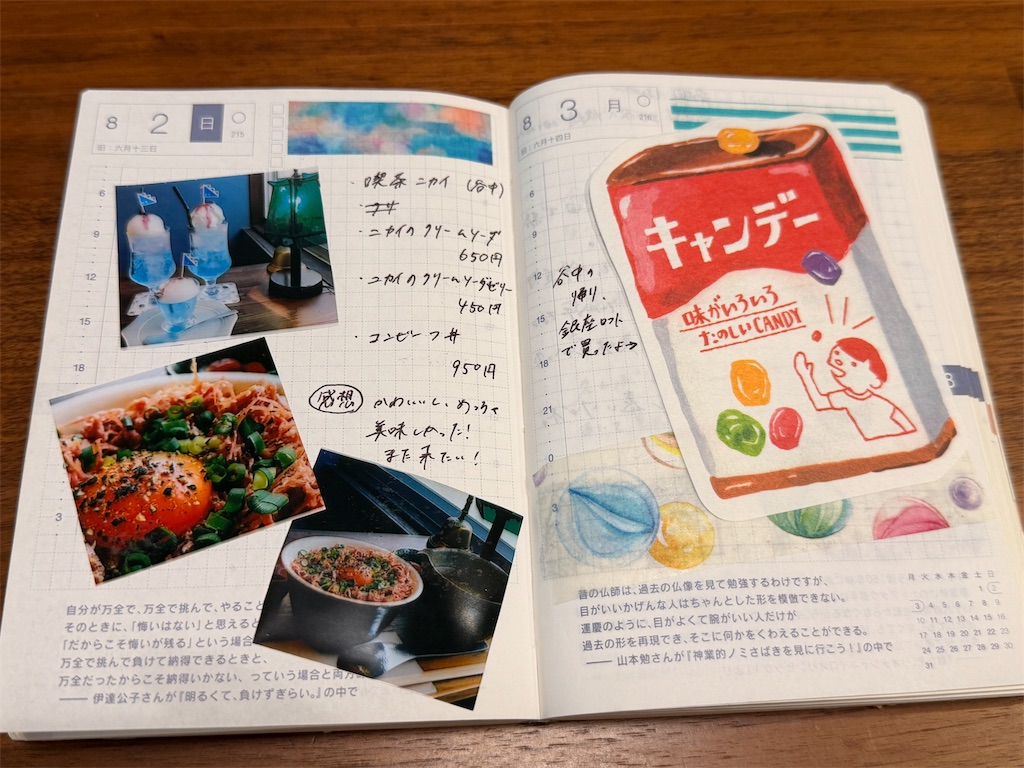 8 2 日
215
旧：六月十三日
6
9
12
15
18
3
・喫茶ニカイ（谷中）
・ニカイのクリームソーダ
650円
・ニカイのクリームソーダゼリー
450円
・コンビーフ丼
950円
感想 かわいいし、めっちゃ
美味しかった！
また来たい！
自分が万全で、万全で挑んで、やること
そのときに、「悔いはない」と思えると
「だからこそ悔いが残る」という場合
万全で挑んで負けて納得できるときと、
万全だったからこそ納得いかない、っていう場合と両方
—— 伊達公子さんが『明るくて、負けずぎらい。』の中で
8 3 月
216
旧：六月十四日
6
9
12
15
18
21
0
3
谷中の
帰り、
銀座ロフト
で買ったよ→
キャンデー
味がいろいろ
たのしいCANDY
昔の仏師は、過去の仏像を見て勉強するわけですが、
目がいいかげんな人はちゃんとした形を模倣できない。
運慶のように、目がよくて腕がいい人だけが
過去の形を再現でき、そこに何かをくわえることができる。
—— 山本勉さんが『神業的ノミさばきを見に行こう！』の中で
月 火 水 木 金 土 日
1 2
3 4 5 6 7 8 9
10 11 12 13 14 15 16
17 18 19 20 21 22 23
24 25 26 27 28 29 30
31
8